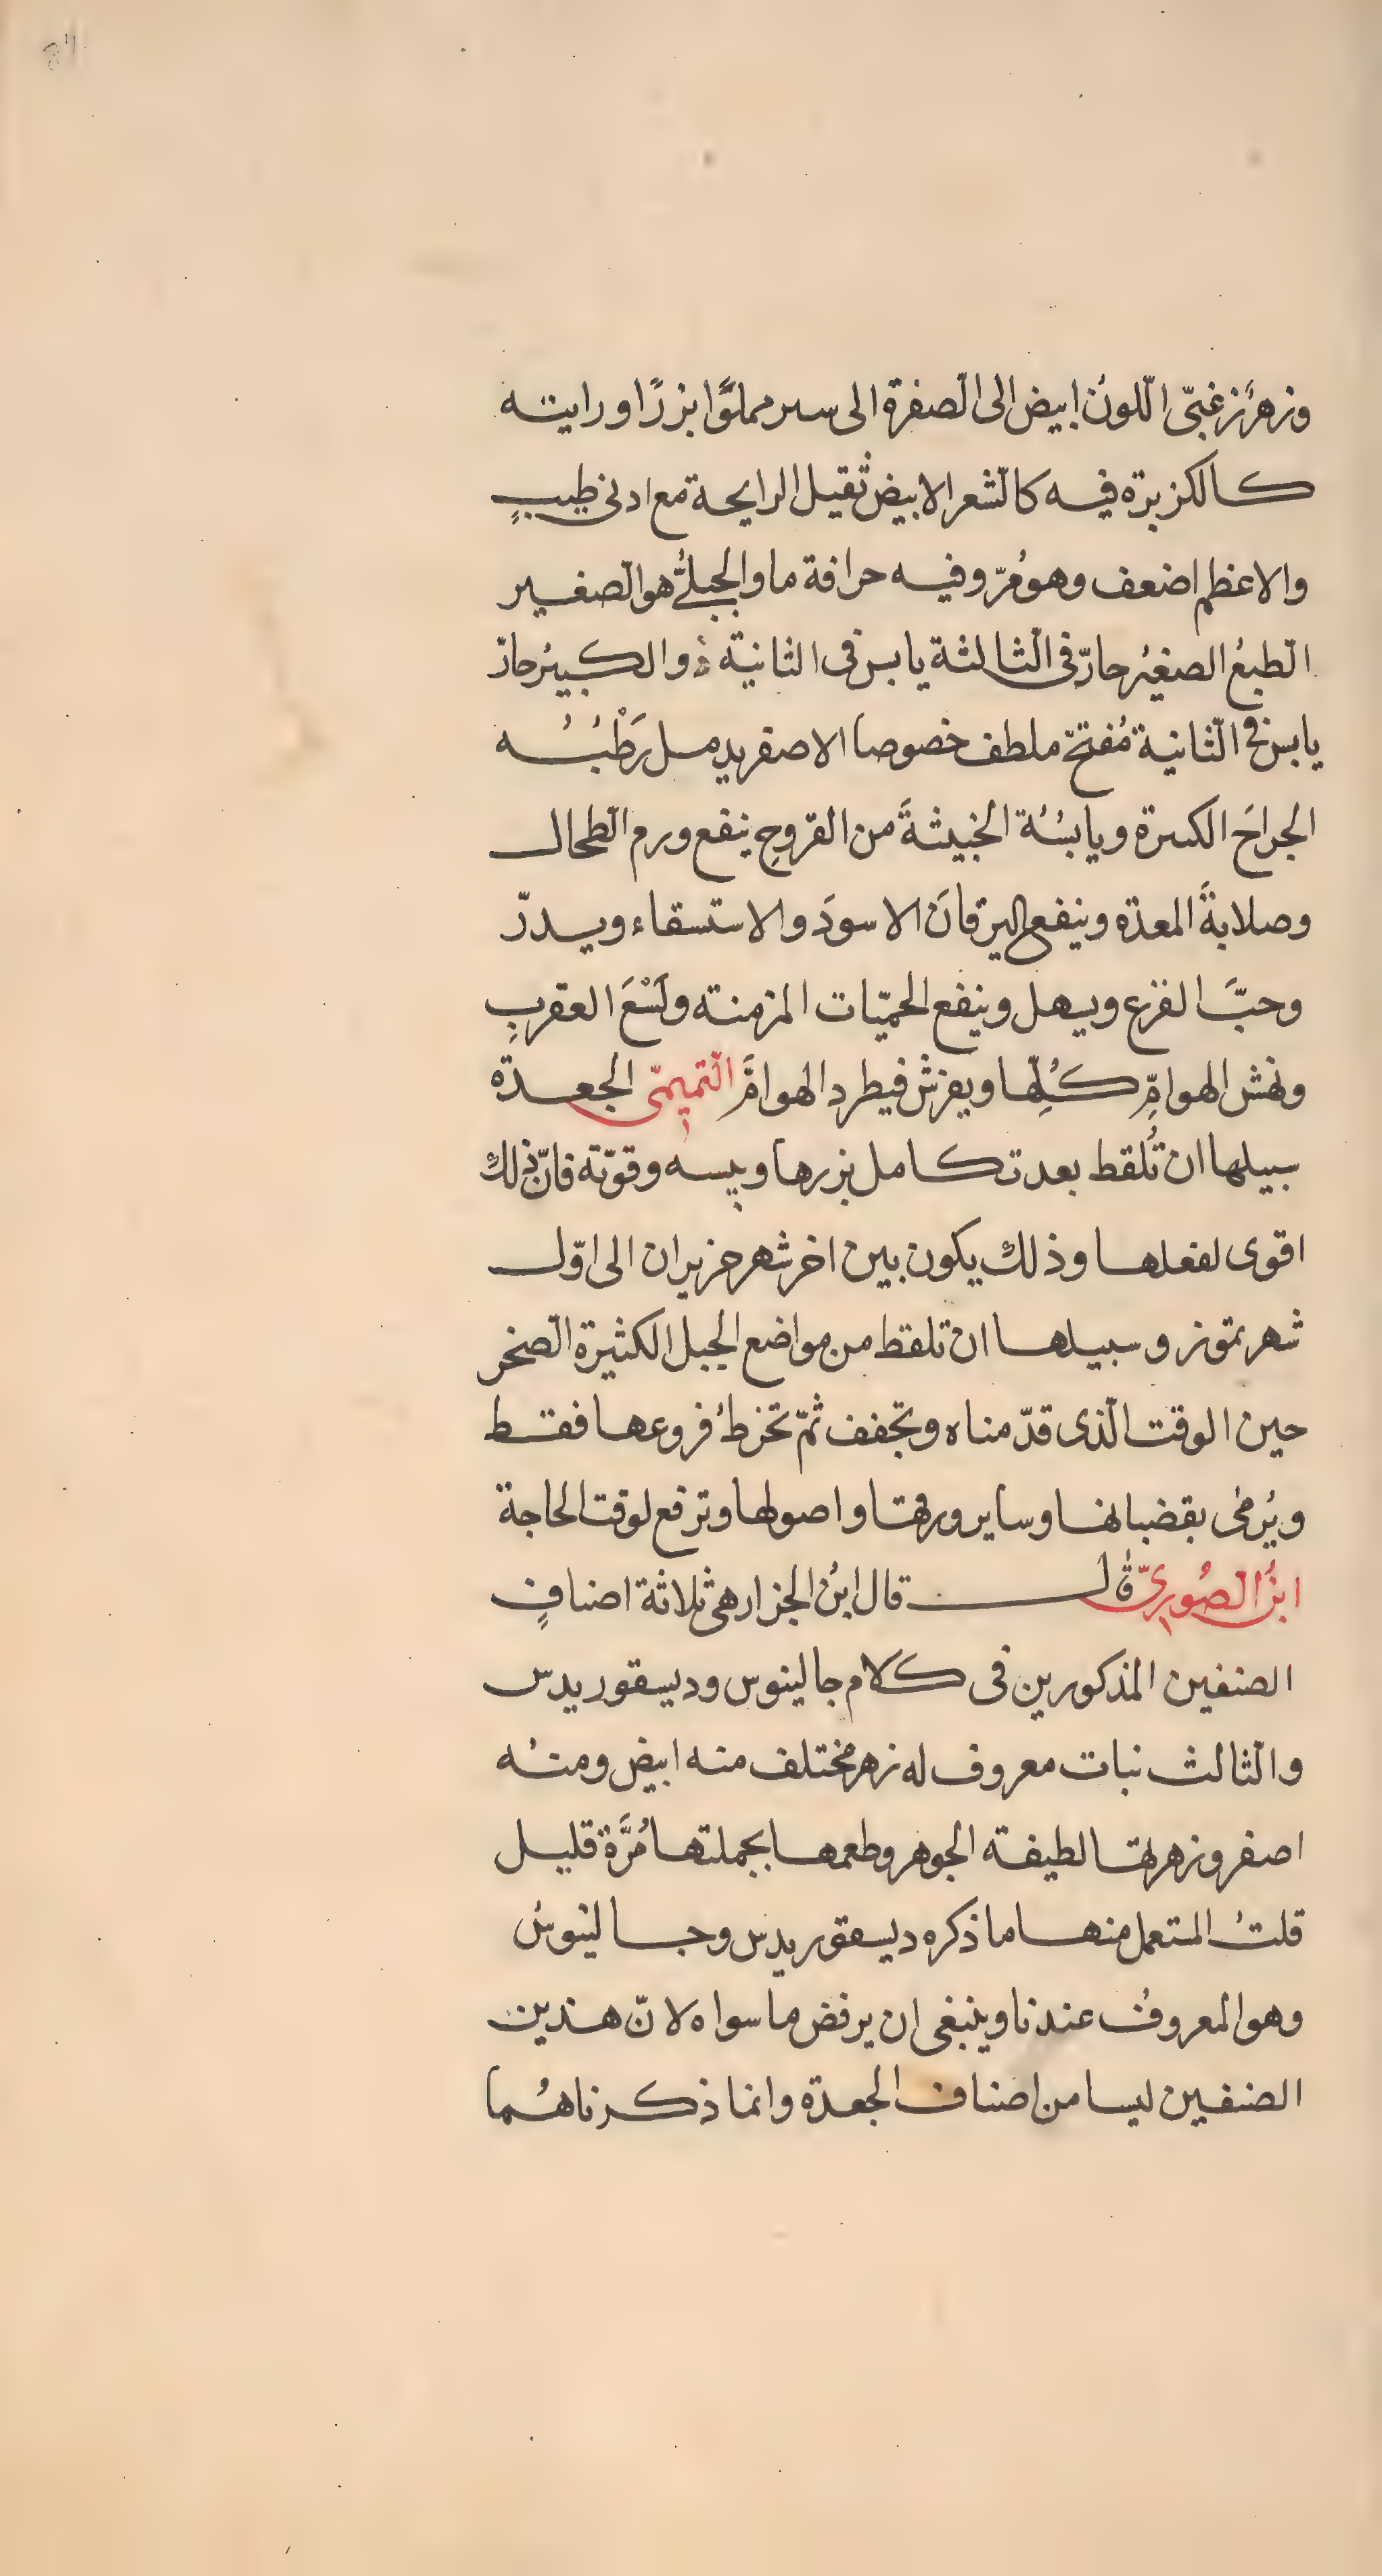 وزهرٌ زغبّى اللّون ابيض الى الصّفرة الى سىر مملوًّا بزرًا ورايته
كالكزبرة فيه كالشّعر الابيض ثقيل الرايحة مع ادنى طيبٍ
والاعظم اضعف وهو مُرّ وفيه حرافة ما والجبلىُّ هو الصّغير
الطّبعُ الصغيرُ حارّ فى الثّالثة يابس فى الثانية و الكبيرُ حارّ
يابس فى الثّانية مُفتّح ملطف خصوصا الاصفر يدمل رَطْبُه
الجراحَ الكبيرة ويابسُه الخبيثةَ من القروحِ ينفع ورم الطّحال
وصلابةَ المعدة وينفع اليرقانَ الاسودَ والاستسقاء ويدرّ
وحبَّ القرع ويسهل وينفع الحميّات المزمنة ولَسْعَ العقربِ
ونهش الهوامِّ كُلِّها ويفرش فيطرد الهوامَّ التّميمىّ الجعدة
سبيلها ان تُلقط بعد تكامل بزرها ويبسه وقوّته فانّ ذلك
اقوى لفعلها وذلك يكون بين اخر شهر حزيران الى اوّل
شهر تموز وسبيلها ان تلقط من مواضع الجبل الكثيرة الصّخر
حين الوقت الّذى قدّمناه وتجفف ثمّ تخرطُ فروعها فقط
ويُرمى بقضبانها وساير ورقها واصولها وترفع لوقت الحاجة
ابنُ الصُّورىّ قال قال ابنُ الجزار هى ثلاثة اصنافٍ
الصنفين المذكورين فى كلام جالينوس وديسقوريدس
والثّالث نبات معروف له زهر مختلف منه ابيض ومنه
اصفر وزهرتها لطيفة الجوهر وطعمها بجملتها مُرَّة قليل
قلتُ المستعمل منها ما ذكره ديسقوريدس وجالينوسُ
وهو المعروفُ عندنا وينبغى ان يرفض ما سواه لانّ هذين
الصّنفين ليسا من اصناف الجعدة وانما ذكرناهُما